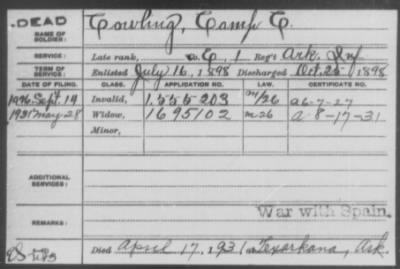 DEAD
NAME OF SOLDIER: Cowling, Camp C.
SERVICE: Late rank, Co. C, 1 Reg't Ark. Inf
TERM OF SERVICE: Enlisted July 16, 1898 Discharged Oct. 25, 1898
DATE OF FILING. CLASS. APPLICATION NO. LAW. CERTIFICATE NO.
1926 Sept. 14 Invalid, 1555203 m/26 a 6-7-27
1931 May-28 Widow, 1695102 m26 a-8-17-31
Minor,
ADDITIONAL SERVICES:
War with Spain.
REMARKS:
Died April 17, 1931 at Texarkana, Ark.